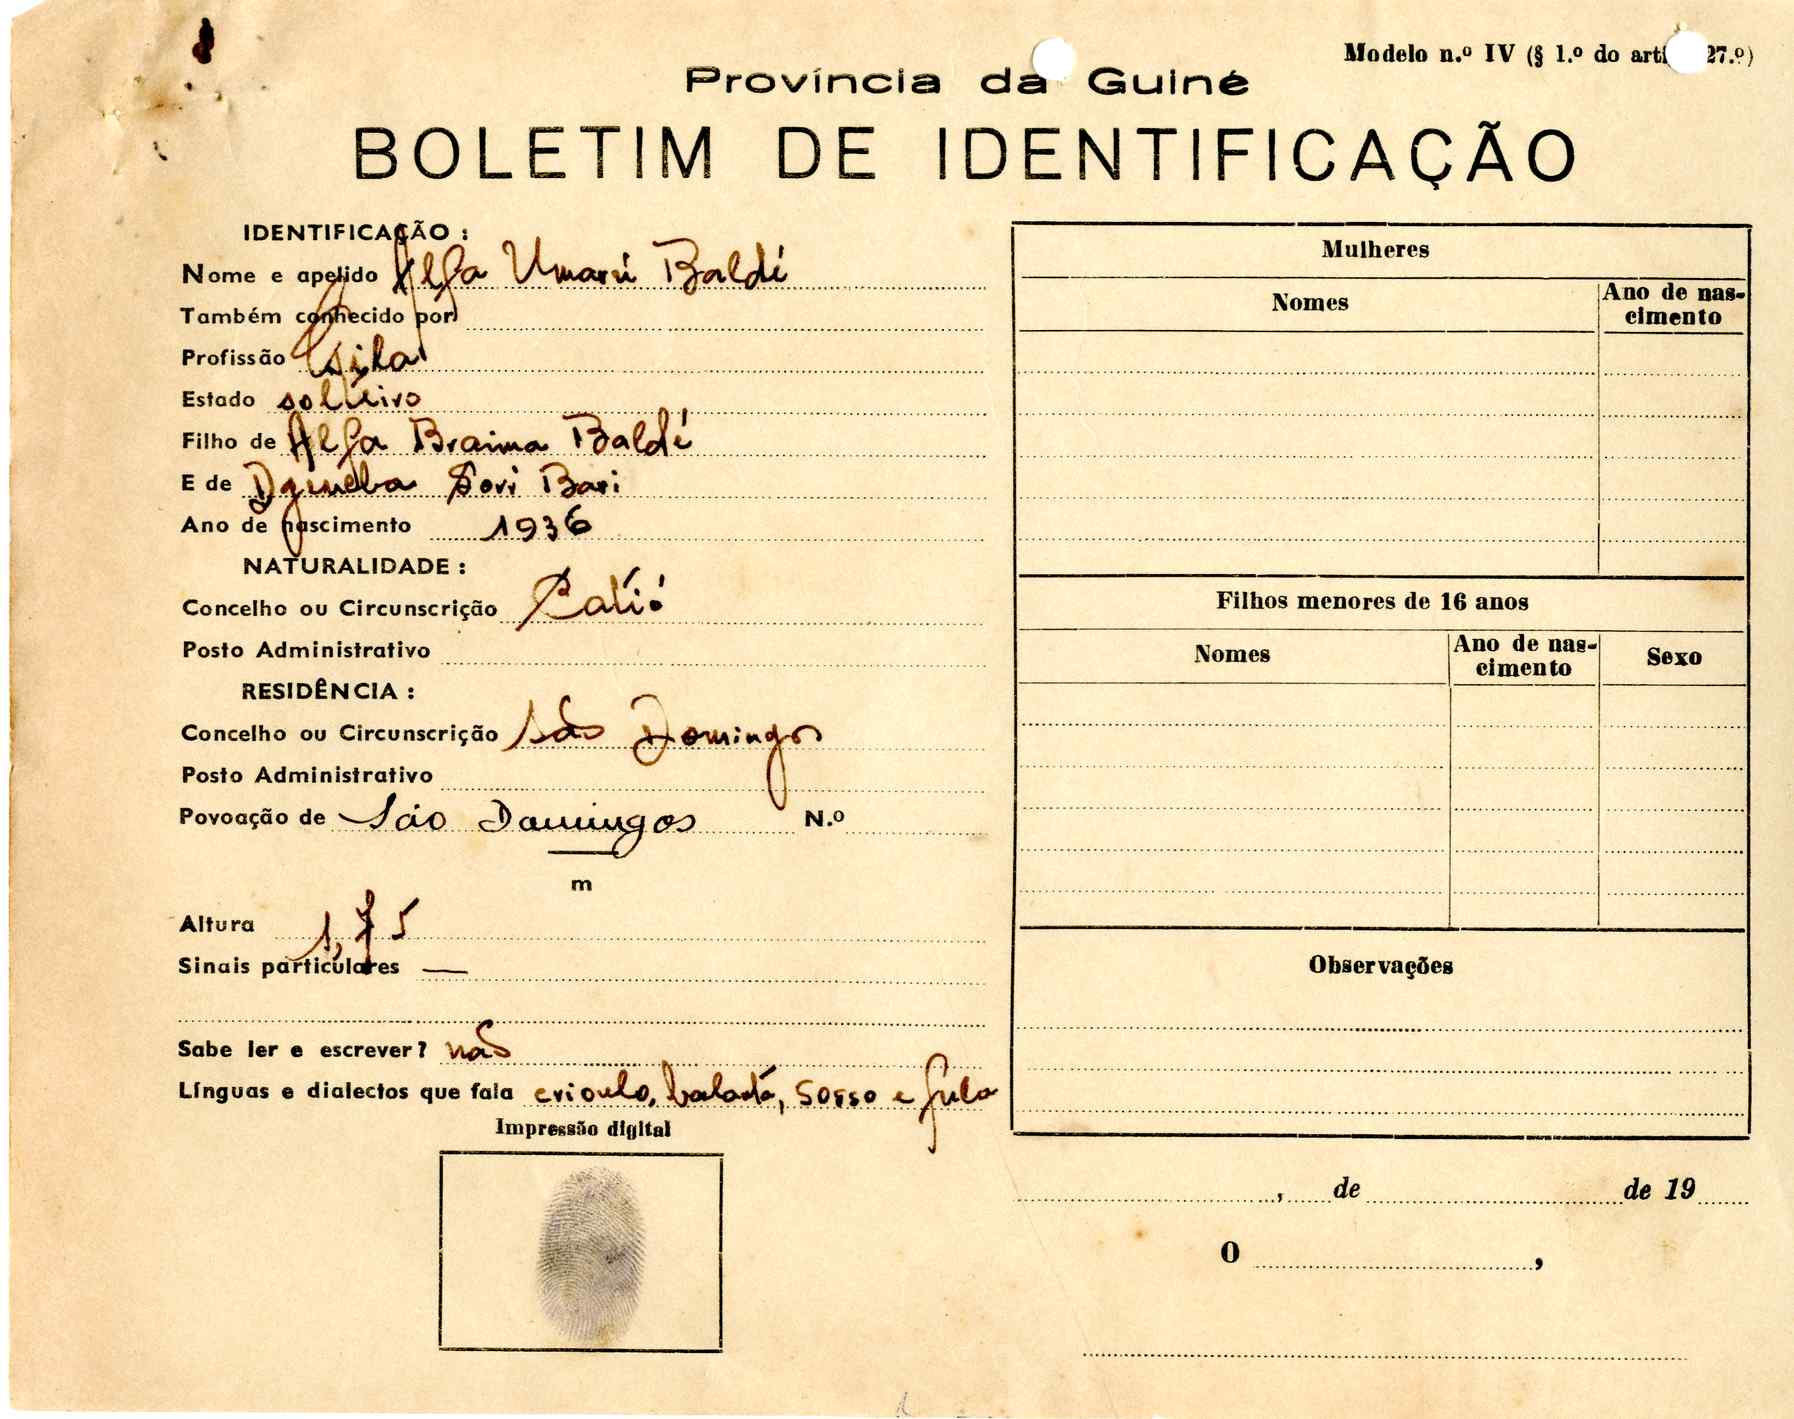 Modelo n.º IV (§ 1.º do arti 27.º)
Província da Guiné
BOLETIM DE IDENTIFICAÇÃO
IDENTIFICAÇÃO :
Nome e apelido Alfa Umarú Baldé
Também conhecido por
Profissão Gila
Estado solteiro
Filho de Alfa Braima Baldé
E de Djeneba Sori Bari
Ano de nascimento 1936
NATURALIDADE :
Concelho ou Circunscrição Catió
Posto Administrativo
RESIDÊNCIA :
Concelho ou Circunscrição São Domingos
Posto Administrativo
Povoação de São Domingos N.º
m
Altura 1,75
Sinais particulares —
Sabe ler e escrever? não
Línguas e dialectos que fala crioulo, balanta, sosso e fula
Impressão digital
Mulheres
Nomes Ano de nas-
cimento
Filhos menores de 16 anos
Nomes Ano de nas- Sexo
cimento
Observações
, de de 19
O ,